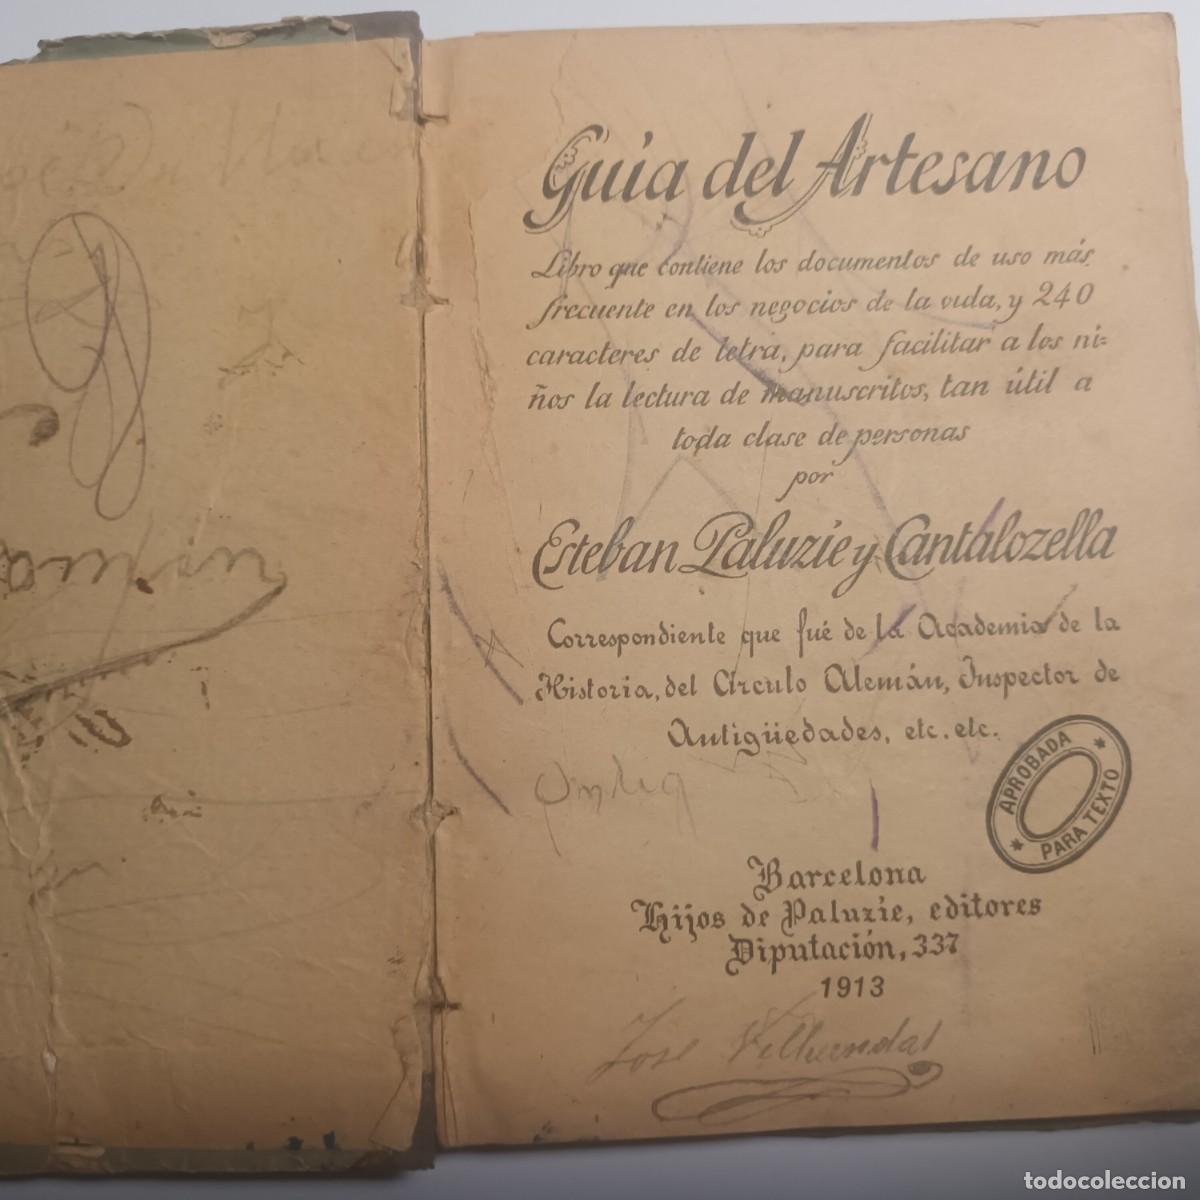 Guía del Artesano
Libro que contiene los documentos de uso más
frecuente en los negocios de la vida, y 240
caracteres de letra, para facilitar a los ni=
ños la lectura de manuscritos, tan útil a
toda clase de personas
por
Esteban Paluzíe y Cantalozella
Correspondiente que fué de la Academia de la
Historia, del Círculo Alemán, Inspector de
Antigüedades, etc. etc.
APROBADA
PARA TEXTO
Barcelona
Hijos de Paluzíe, editores
Diputación, 337
1913
José Villuendas
todocoleccion